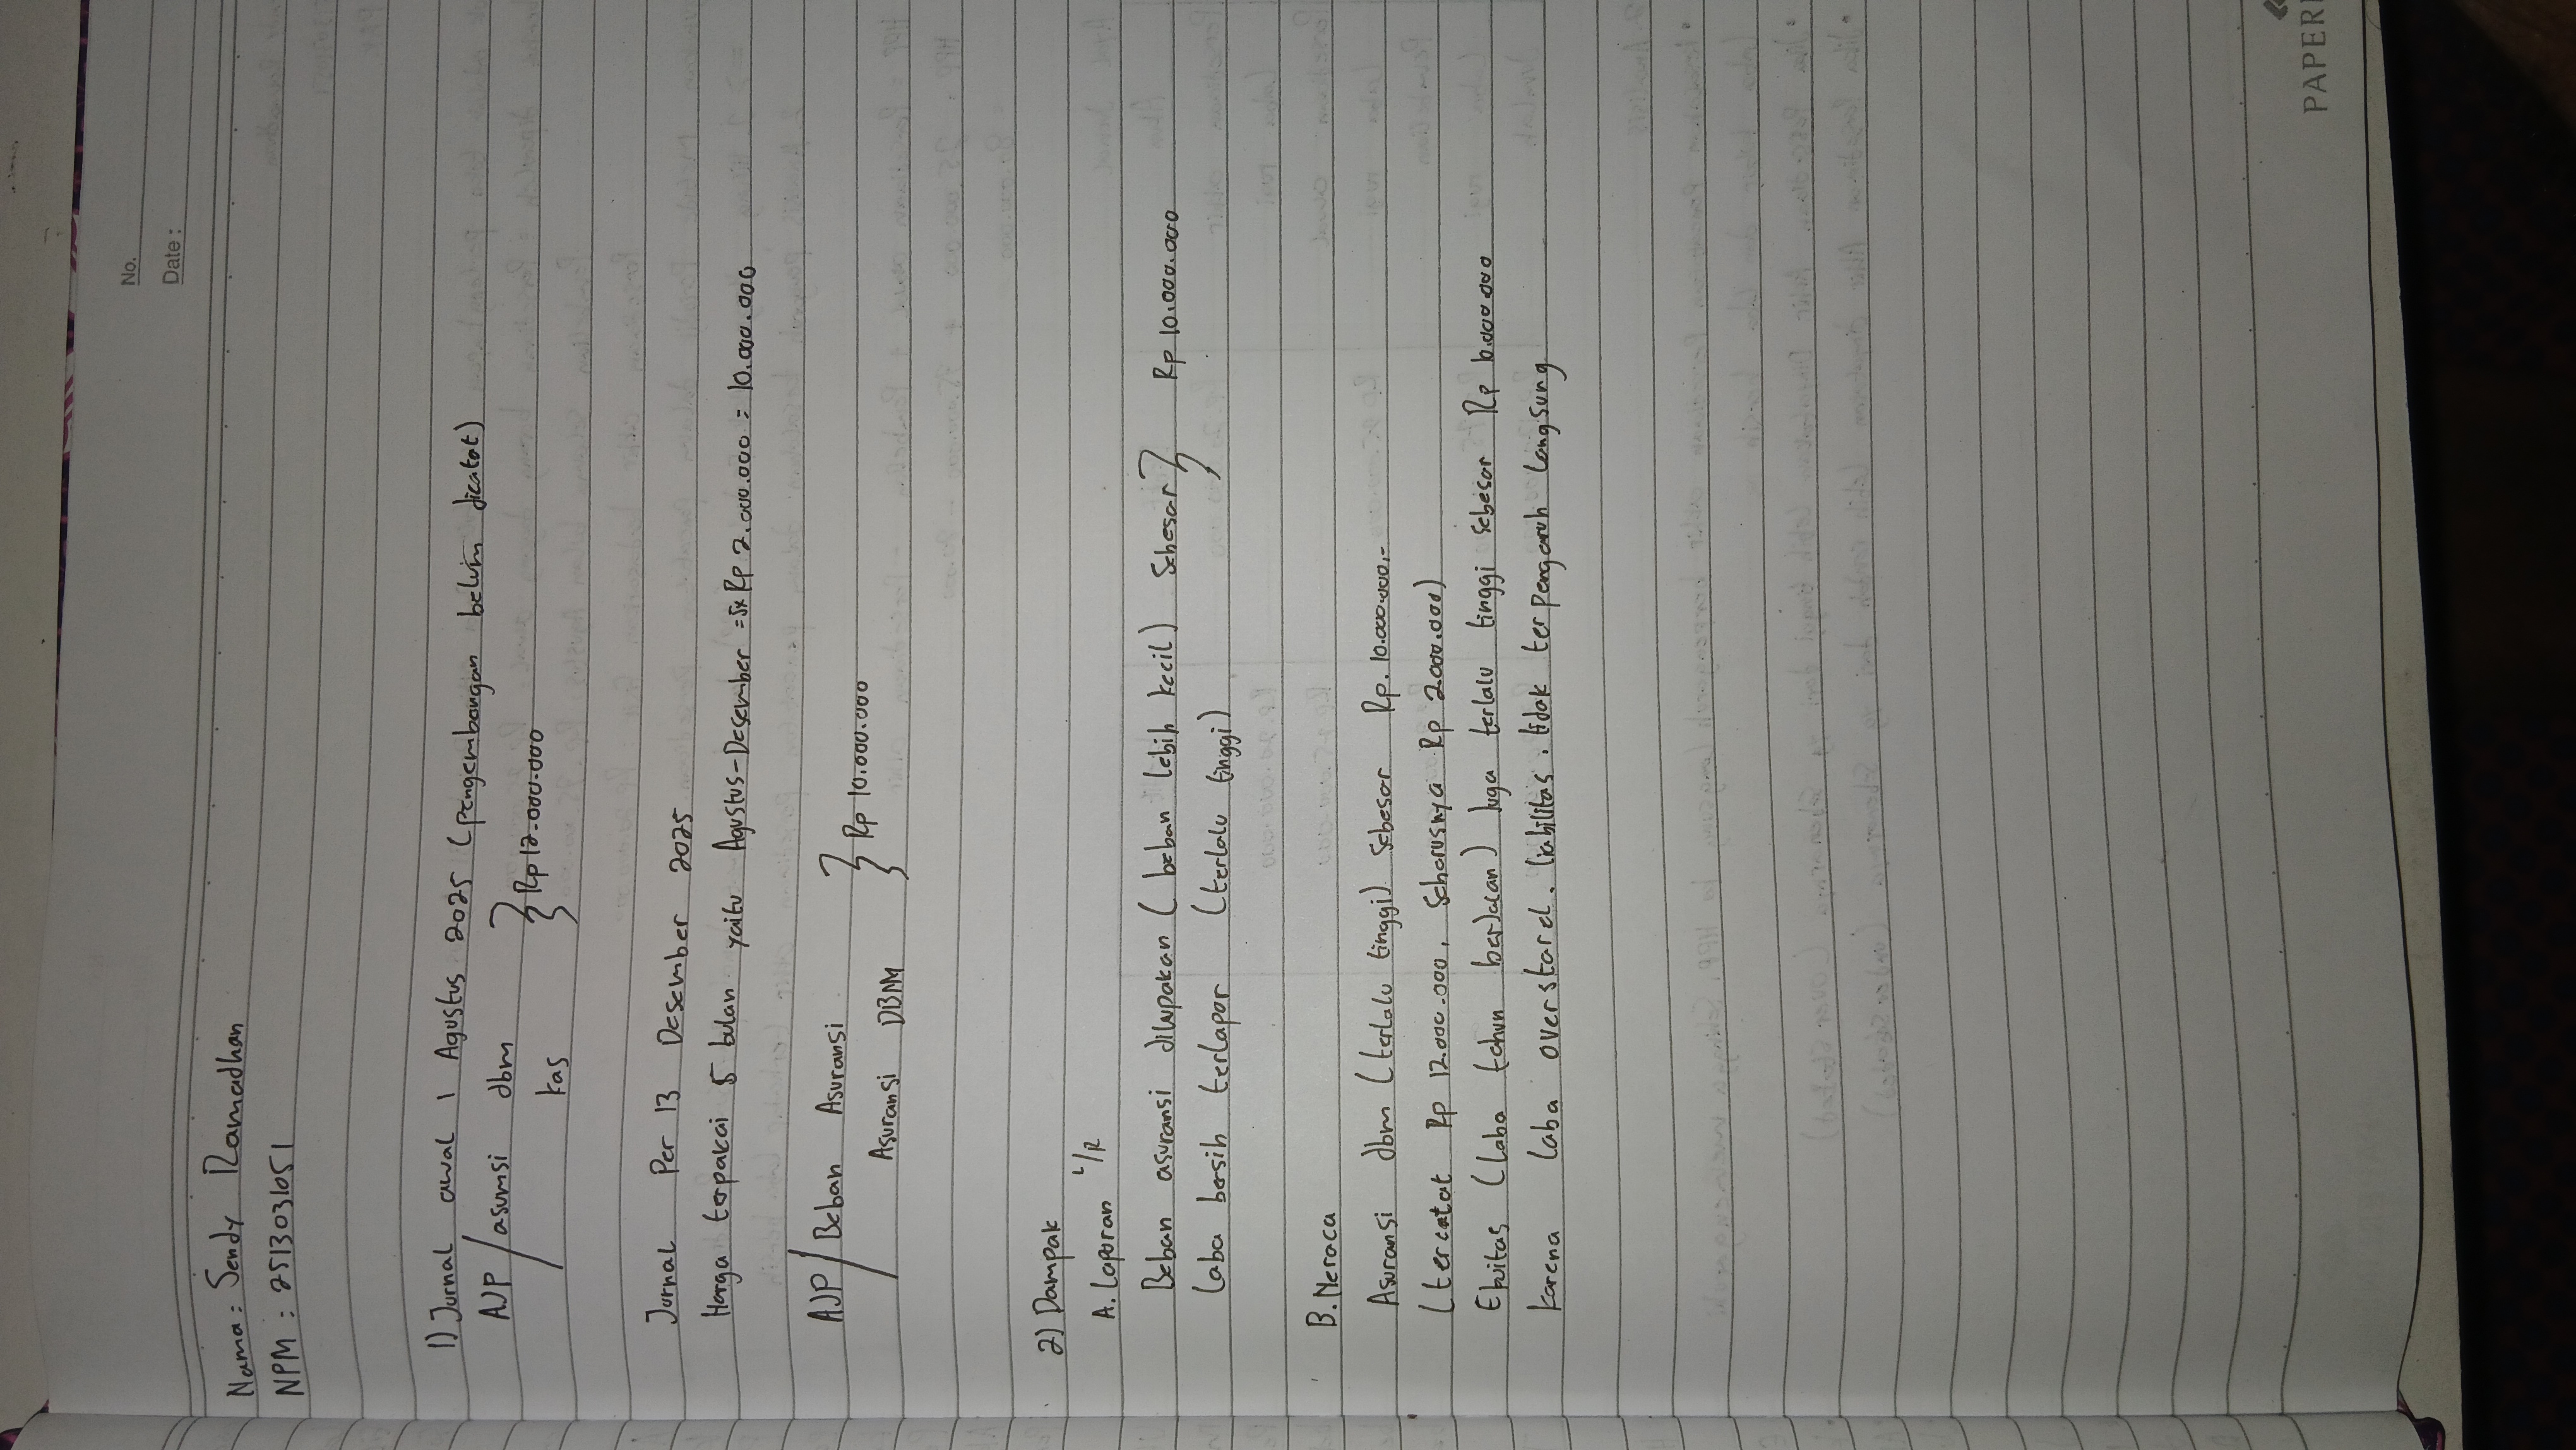 No.
Date:
Nama: Sendy Ramadhan
NPM: 2513031051
1) Jurnal awal 1 Agustus 2025 (pengembangan belum dicatat)
AJP / asumsi dbm } Rp 12.000.000
kas
Jurnal Per 13 Desember 2025
Harga terpakai 5 bulan yaitu Agustus-Desember = 5x Rp 2.000.000 = 10.000.000
AJP / Beban Asuransi } Rp 10.000.000
Asuransi DBM
2) Dampak
A. Laporan L/R
Beban asuransi dilupakan (beban lebih kecil) Sebesar } Rp 10.000.000
Laba bersih terlapor (terlalu tinggi)
B. Neraca
Asuransi dbm (terlalu tinggi) sebesar Rp. 10.000.000,-
(tercatat Rp 12.000.000, seharusnya Rp 2000.000)
Ekuitas (Laba tahun berjalan) juga terlalu tinggi sebesar Rp
karena laba overstared. Liabilitas : tidak terpengaruh langsung
PAPERL